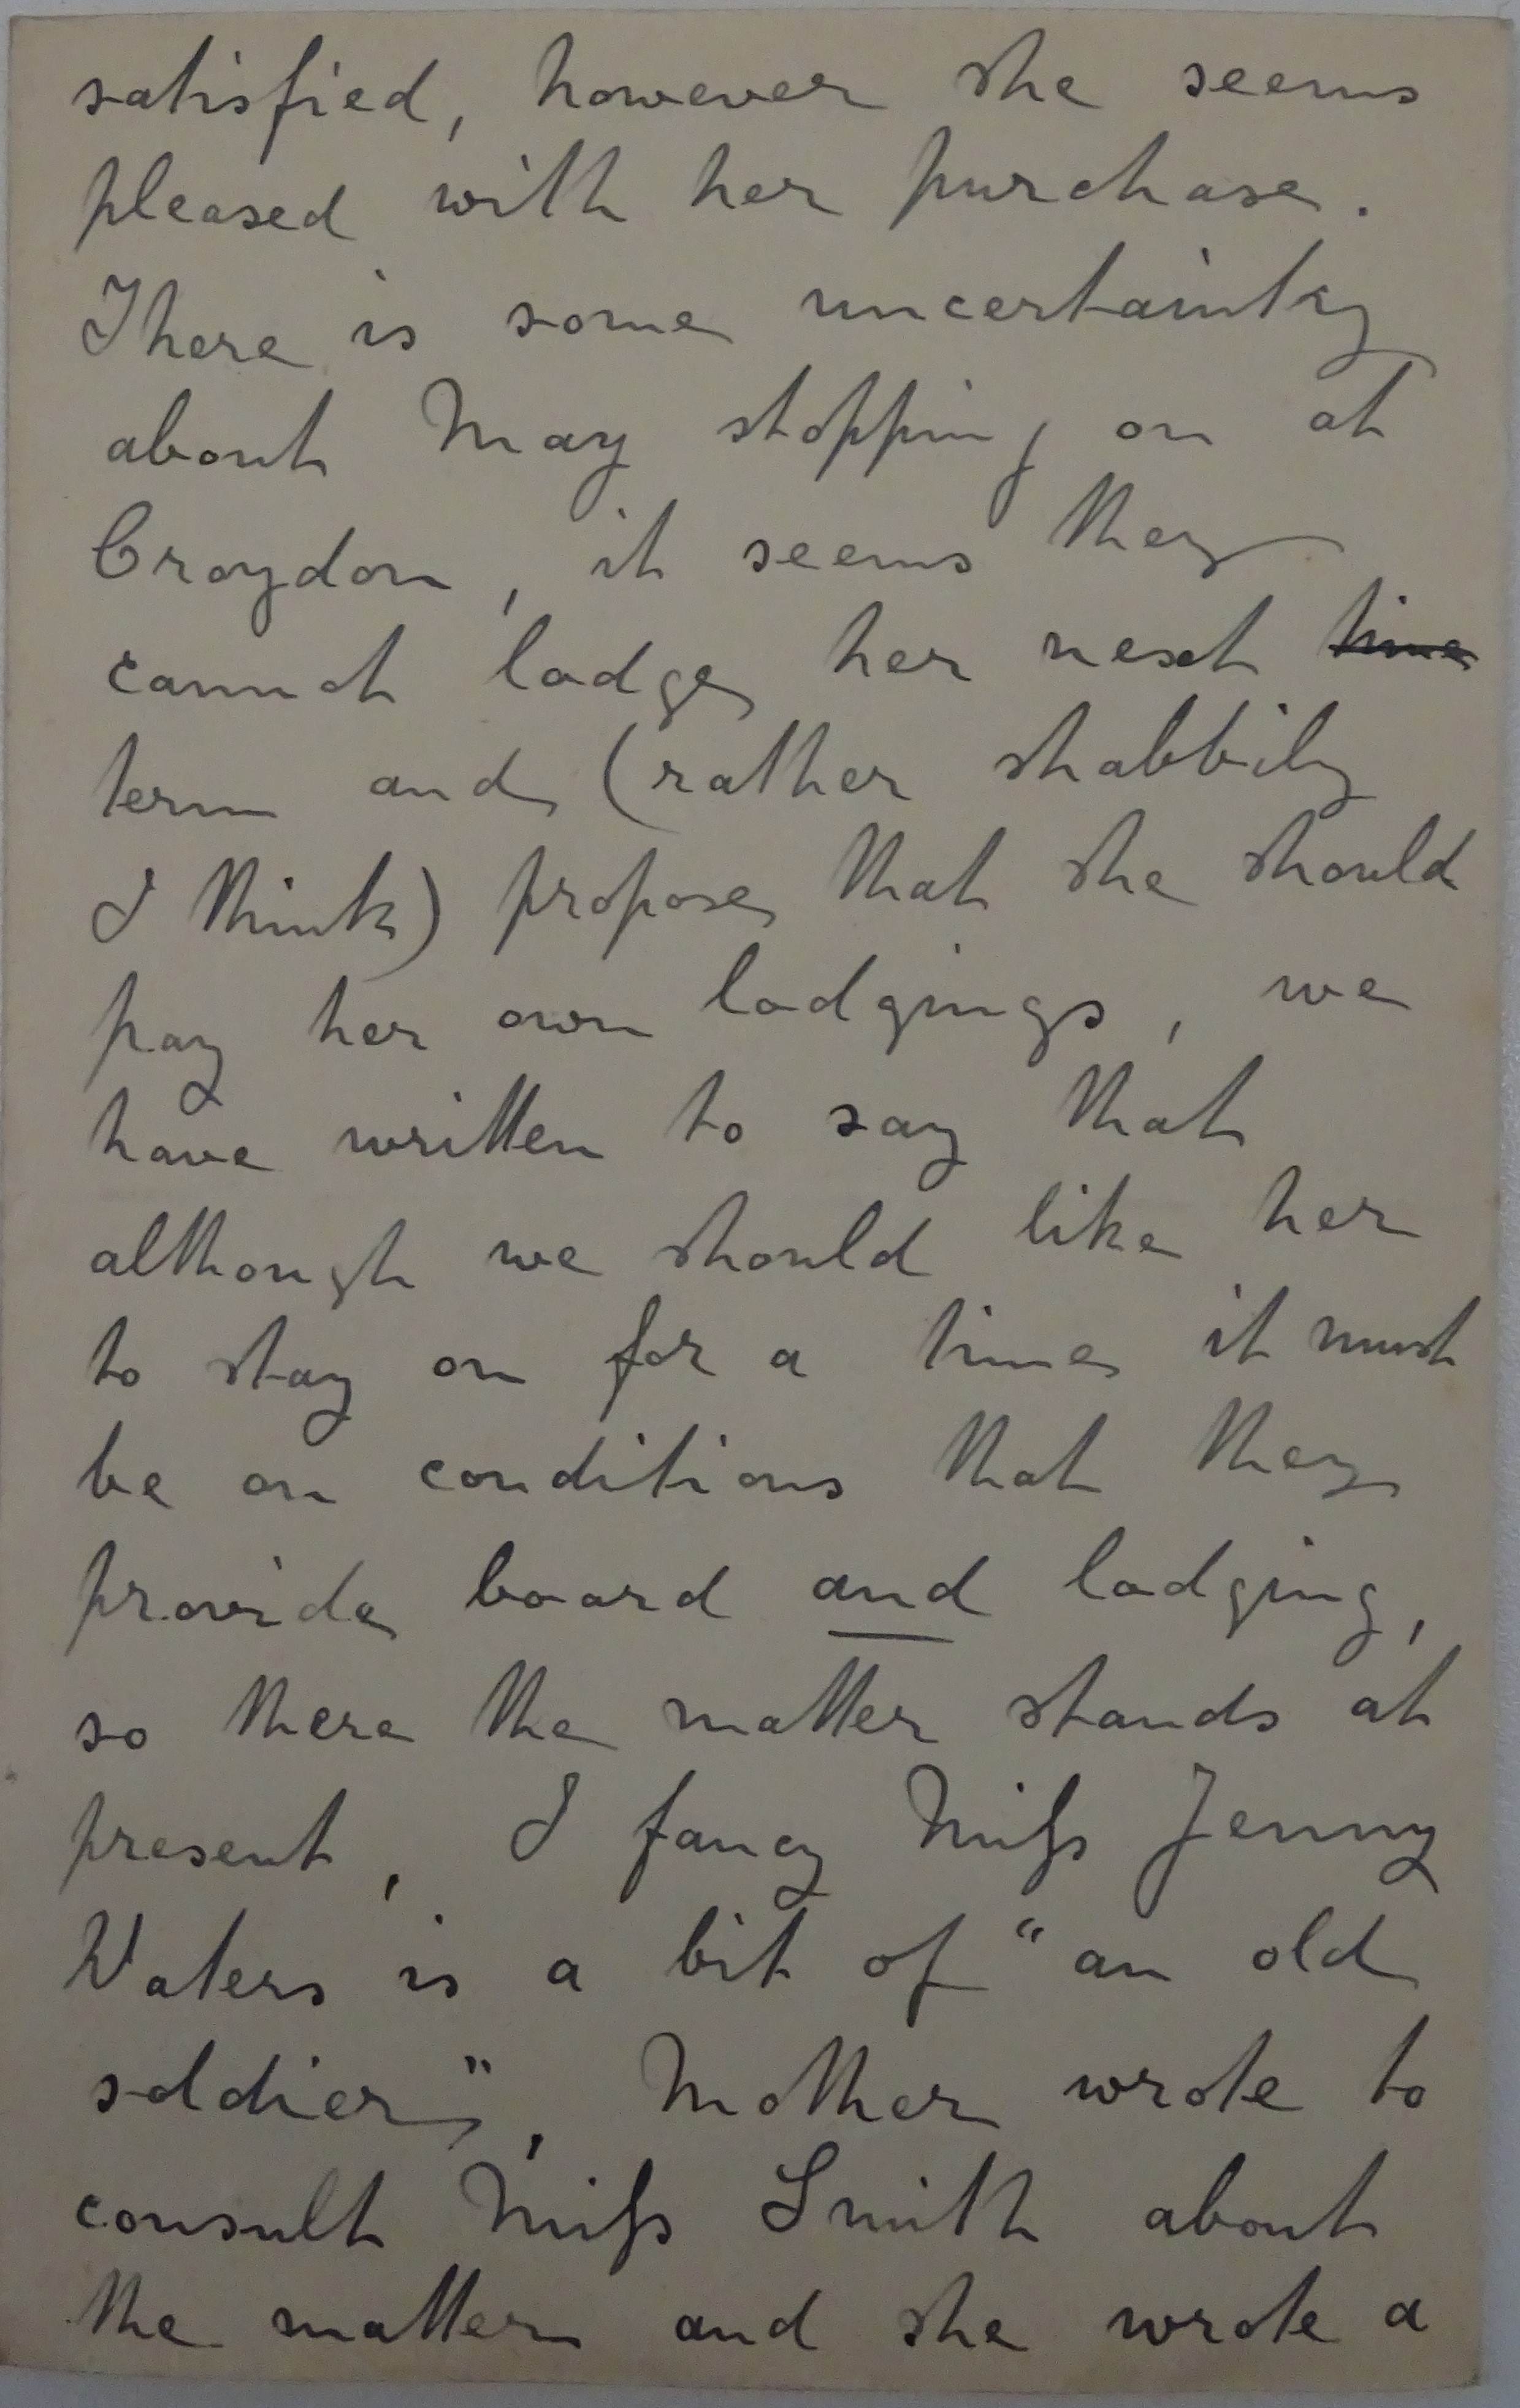 satisfied, however she seems
pleased with her purchase.
There is some uncertainty
about May stopping on at
Croydon, it seems they
cannot lodge her next time
term and (rather shabbily
I think) propose that she should
pay her own lodgings, we
have written to say that
although we should like her
to stay on for a time it must
be on conditions that they
provide board and lodging,
so there the matter stands at
present, I fancy Miſs Jenny
Waters is a bit of "an old
soldier", Mother wrote to
consult Miſs Smith about
the matter and she wrote a